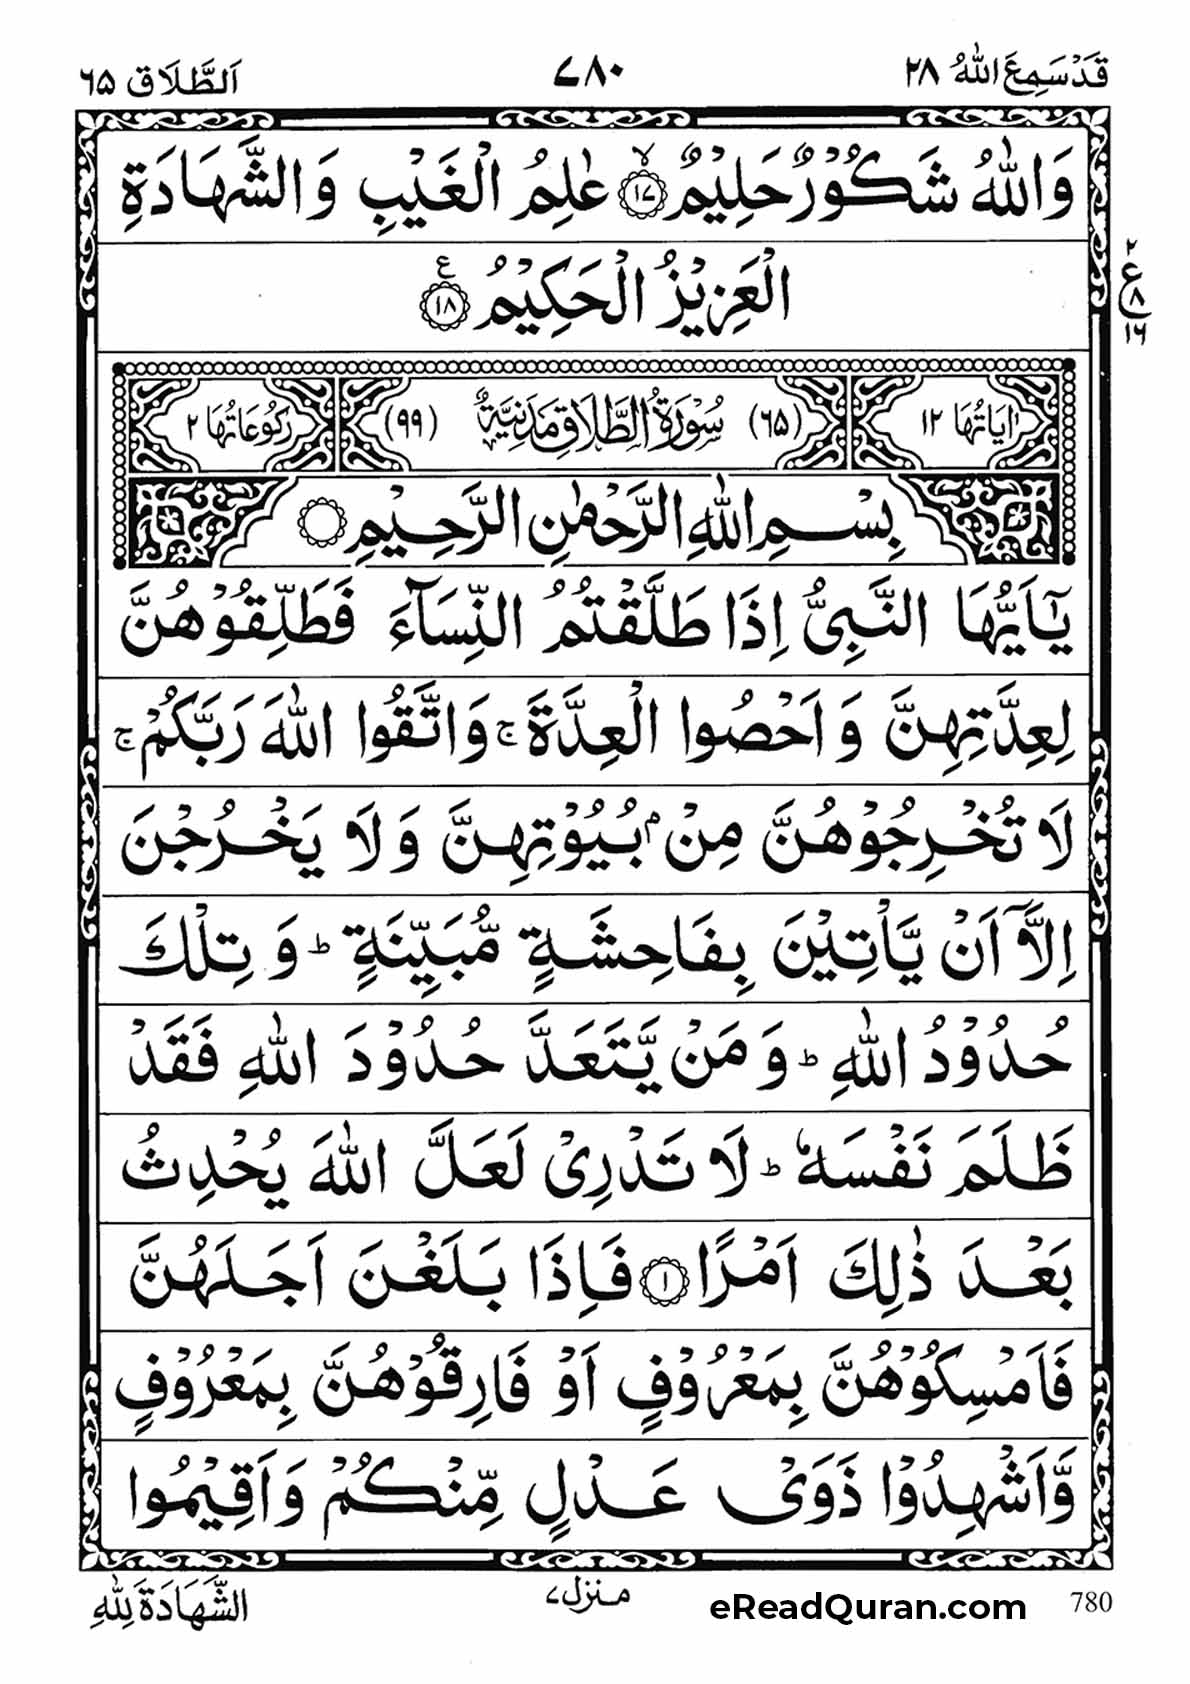 قَدْسَمِعَ اللّٰهُ ٢٨
٧٨٠
اَلطَّلَاق ٦٥
وَاللّٰهُ شَكُوْرٌ حَلِيْمٌ ۙ﴿١٧﴾ عٰلِمُ الْغَيْبِ وَالشَّهَادَةِ
الْعَزِيْزُ الْحَكِيْمُ ﴿١٨﴾ ع
٢
ع
٨
١٦
اٰيَاتُهَا ١٢
(٦٥) سُوْرَةُ الطَّلَاقِ مَدَنِيَّةٌ (٩٩)
رُكُوْعَاتُهَا ٢
بِسْمِ اللّٰهِ الرَّحْمٰنِ الرَّحِيْمِ
يٰۤاَيُّهَا النَّبِىُّ اِذَا طَلَّقْتُمُ النِّسَآءَ فَطَلِّقُوْهُنَّ
لِعِدَّتِهِنَّ وَاَحْصُوا الْعِدَّةَ ۚ وَاتَّقُوا اللّٰهَ رَبَّكُمْ ۚ
لَا تُخْرِجُوْهُنَّ مِنْۢ بُيُوْتِهِنَّ وَلَا يَخْرُجْنَ
اِلَّاۤ اَنْ يَّاْتِيْنَ بِفَاحِشَةٍ مُّبَيِّنَةٍ ؕ وَتِلْكَ
حُدُوْدُ اللّٰهِ ؕ وَمَنْ يَّتَعَدَّ حُدُوْدَ اللّٰهِ فَقَدْ
ظَلَمَ نَفْسَهٗ ؕ لَا تَدْرِىْ لَعَلَّ اللّٰهَ يُحْدِثُ
بَعْدَ ذٰلِكَ اَمْرًا ﴿١﴾ فَاِذَا بَلَغْنَ اَجَلَهُنَّ
فَاَمْسِكُوْهُنَّ بِمَعْرُوْفٍ اَوْ فَارِقُوْهُنَّ بِمَعْرُوْفٍ
وَّاَشْهِدُوْا ذَوَىْ عَدْلٍ مِّنْكُمْ وَاَقِيْمُوا
780
eReadQuran.com
منزل ٧
الشَّهَادَةَ لِلّٰهِ